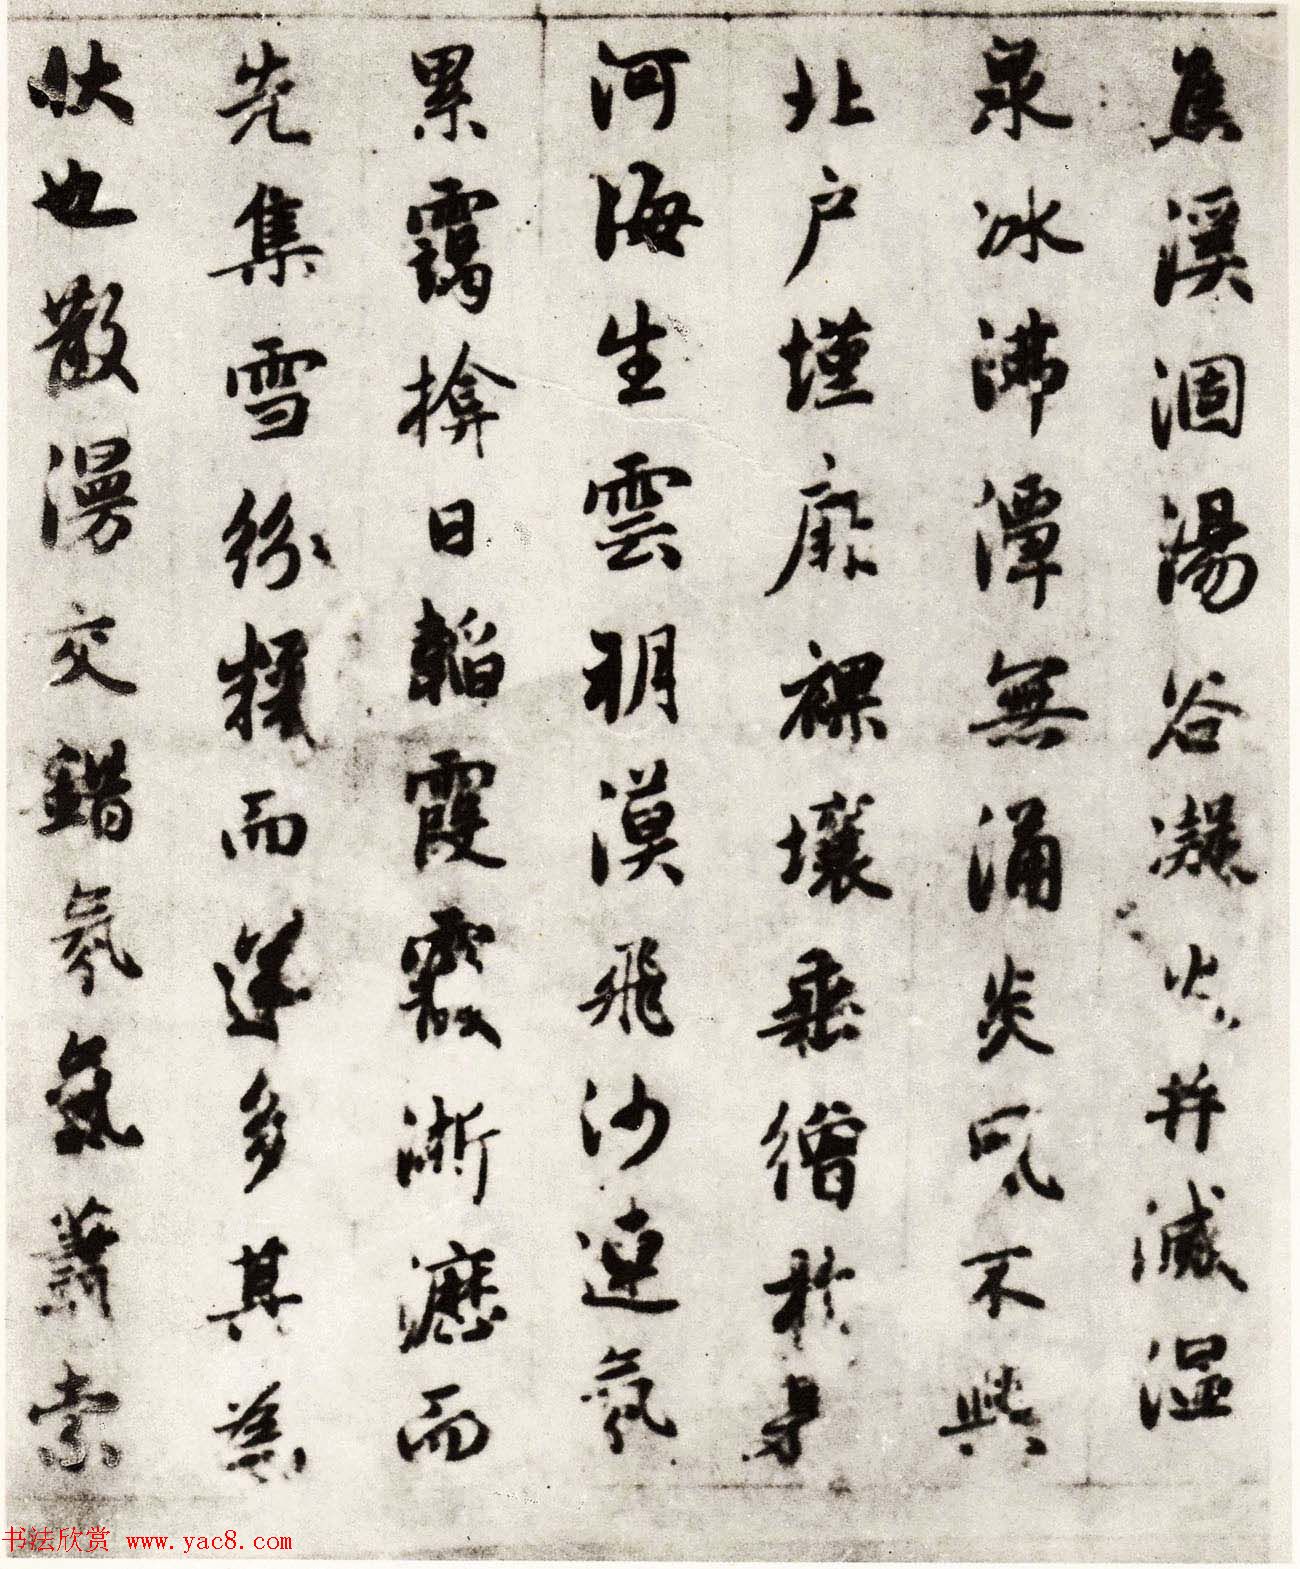 焦溪涸湯谷凝火井滅温
泉冰沸潭無涌炎風不興
北户墐扉裸壤垂繒於是
河海生雲朔漠飛沙連氛
累靄揜日韜霞霰淅瀝而
先集雪紛糅而遂多其為
狀也散漫交錯氛氳蕭索
书法欣赏 www.yac8.com